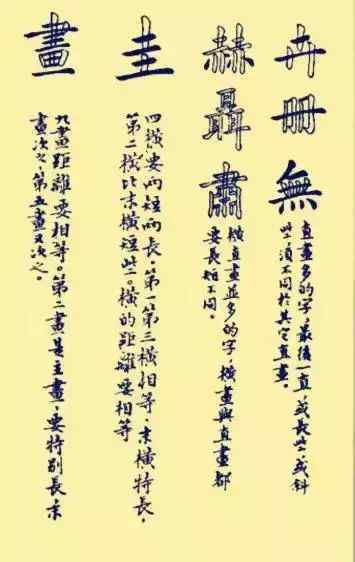 卉冊無
直畫多的字，最後一直，或長些，或斜
些，須不同於其它直畫。
赫聶肅
橫直畫並多的字，橫畫與直畫都
要長短不同。
圭
四橫要兩短兩長，第一第三橫相等，末橫特長，
第二橫比末橫短些。橫的距離要相等
畫
九畫距離要相等。第二畫是主畫，要特別長，末
畫次之，第五畫又次之。